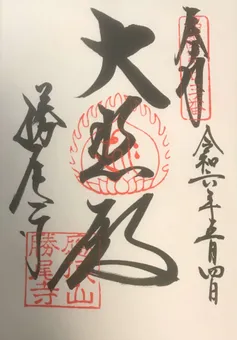 奉拝
令和六年五月四日
大悲殿
勝尾寺
應頂山
勝尾寺